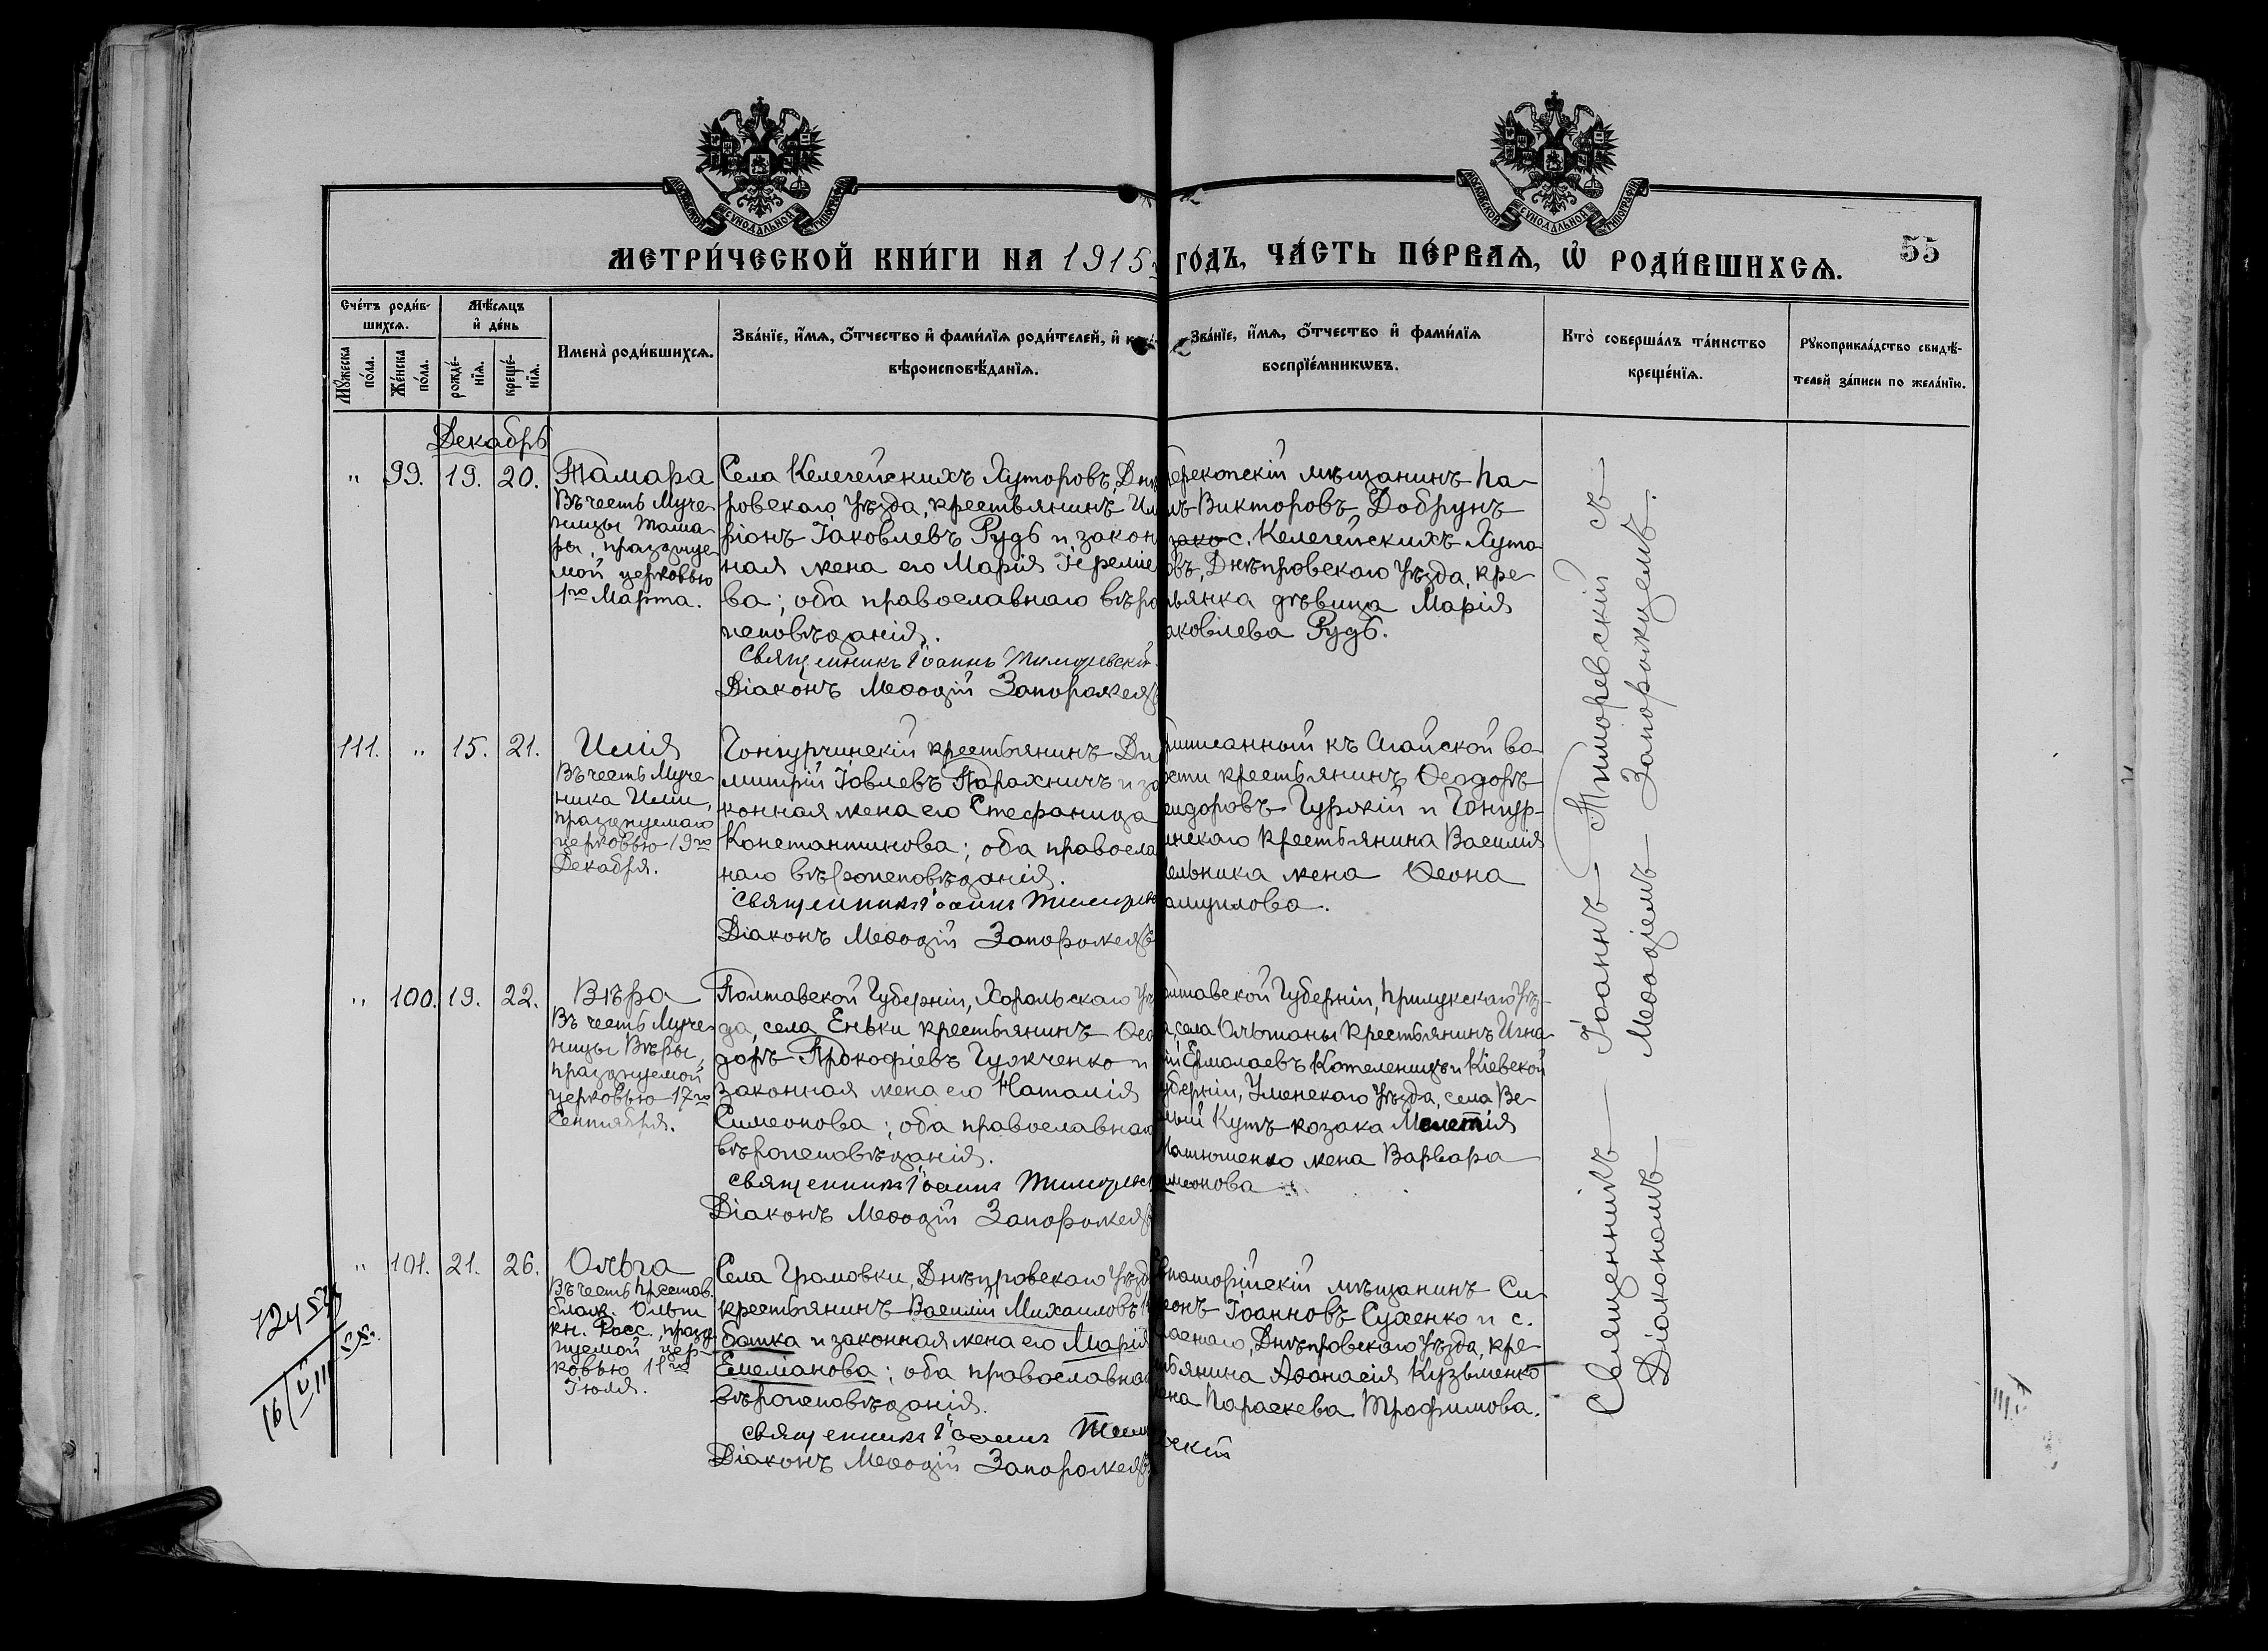 МОСКОВСКОЙ СѴНОДАЛЬНОЙ ТИПОГРАФІИ
МОСКОВСКОЙ СѴНОДАЛЬНОЙ ТИПОГРАФІИ
МЕТРИ́ЧЕСКОЙ КНИ́ГИ НА 1915 ГО́ДЪ, ЧА́СТЬ ПЕ́РВАѦ, Ѡ҆ РОДИ́ВШИХСѦ.
55
Сче́тъ роди́в-
шихсѧ.
Мꙋ́жеска
по́ла.
Же́нска
по́ла.
Мѣ́сѧцъ
и҆ де́нь
рожде́-
нїѧ.
креще́-
нїѧ.
Имена̀ роди́вшихсѧ.
Зва́нїе, и҆́мѧ, ѻ҆́тчество и҆ фами́лїѧ роди́телей, и҆
вѣроисповѣ́данїѧ.
Зва́нїе, и҆́мѧ, ѻ҆́тчество и҆ фами́лїѧ
воспрїе́мникѡвъ.
Кто̀ соверша́лъ та́инство
креще́нїѧ.
Рꙋкоприкла́дство свидѣ́-
телей за́писи по жела́нїю.
Декабрь
" 99. 19. 20.
Тамара
Въ честь Муче-
ницы Тама-
ры, празднуе
мой церковью
1го Марта.
Села Келегейскихъ Хуторовъ, Днѣ
ровскаго уѣзда, крестьянинъ Ил
ріонъ Іаковлевъ Рудь и закон
ная жена его Марія Іереміе
ва; оба православнаго вѣро
исповѣданія.
Священникъ Іоаннъ Тиморевскій
Діаконъ Меѳодій Запорожецъ
ерекопскій мѣщанинъ Па-
лъ Викторовъ Добрунъ
с. Келегейскихъ Хуто
овъ, Днѣпровскаго уѣзда, кре-
ьянка дѣвица Марія
аковлева Рудь.
111. " 15. 21.
Илія
Въ честь Муче-
ника Иліи,
празднуемаго
церковью 19го
Декабря.
Чонгурчинскій крестьянинъ Ди
митрій Іовлевъ Парахничъ и за
конная жена его Стефанида
Константинова; оба правосла
наго вѣроисповѣданія.
Священникъ Іоаннъ
Діаконъ Меѳодій Запорожецъ
риписанный къ Агайской во-
ости крестьянинъ Ѳеодоръ
сидоровъ Гурскій и Чонгур-
инскаго крестьянина Василія
ельника жена Ѳеона
амуилова.
" 100. 19. 22.
Вѣра
Въ честь Муче-
ницы Вѣры,
празднуемой
церковью 17го
Сентября.
Полтавской Губерніи, Хорольскаго уѣ
да, села Еньки крестьянинъ Ѳео
доръ Прокофіевъ Гужченко и
законная жена его Наталія
Симеонова; оба православнаго
вѣроисповѣданія.
Священникъ Іоаннъ
Діаконъ Меѳодій Запорожецъ
олтавской Губерніи, Прилукскаго уѣз-
а, села Ольшаны крестьянинъ Игна-
ій Ермолаевъ Котеленицъ и Кіевской
уберніи, Уменскаго уѣзда, села Ве-
лый Кутъ козака Мелетія
Матюшенко жена Варвара
имеонова
" 101. 21. 26.
Ольга
Въ честь престав.
благ. Ольги
кн. Росс., празд-
нуемой цер-
ковью 11го
Іюля.
Села Громовки, Днѣпровскаго уѣзда
крестьянинъ Василій Михаиловъ
батка и законная жена его Марія
Емеліанова; оба православнаго
вѣроисповѣданія.
Священникъ Іоаннъ
вскій
Діаконъ Меѳодій Запорожецъ.
впаторійскій мѣщанинъ Си-
еонъ Іоанновъ Сухенко и с.
Днѣпровскаго уѣзда, кре-
тьянина Аѳанасія Кузьменко
ена Параскева Трофимова.
Священникъ Іоаннъ Тиморевскій съ
Діакономъ Меѳодіемъ Запорожцемъ.
16/VIII